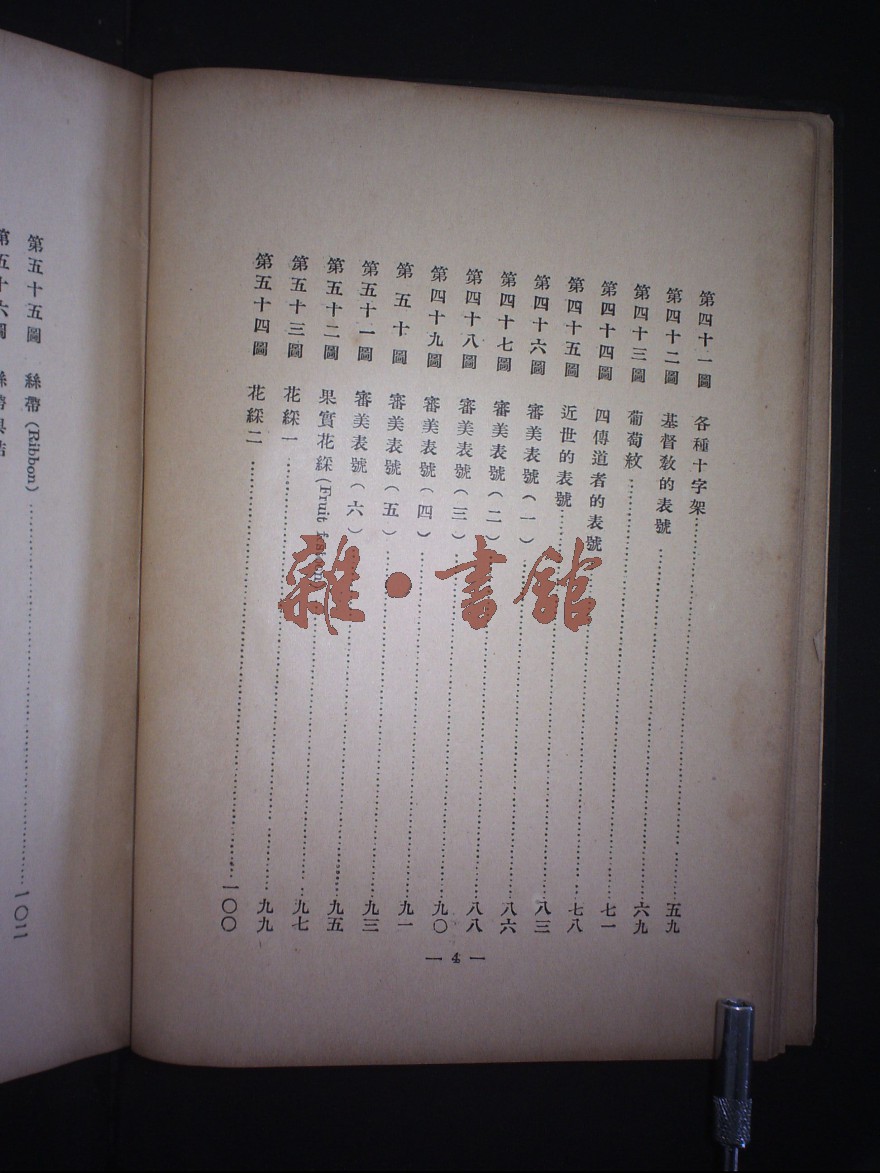 第四十一圖　各種十字架……五九
第四十二圖　基督教的表號……六九
第四十三圖　葡萄紋……七一
第四十四圖　四傳道者的表號……七八
第四十五圖　近世的表號……八三
第四十六圖　審美表號(一)……八六
第四十七圖　審美表號(二)……八八
第四十八圖　審美表號(三)……九〇
第四十九圖　審美表號(四)……九一
第五十圖　審美表號(五)……九三
第五十一圖　審美表號(六)……九五
第五十二圖　果實花綵(Fruit festoon)……九七
第五十三圖　花綵一……九九
第五十四圖　花綵二……一〇〇
— 4 —
第五十五圖　絲帶(Ribbon)……一〇二
第五十六圖
雜•書館